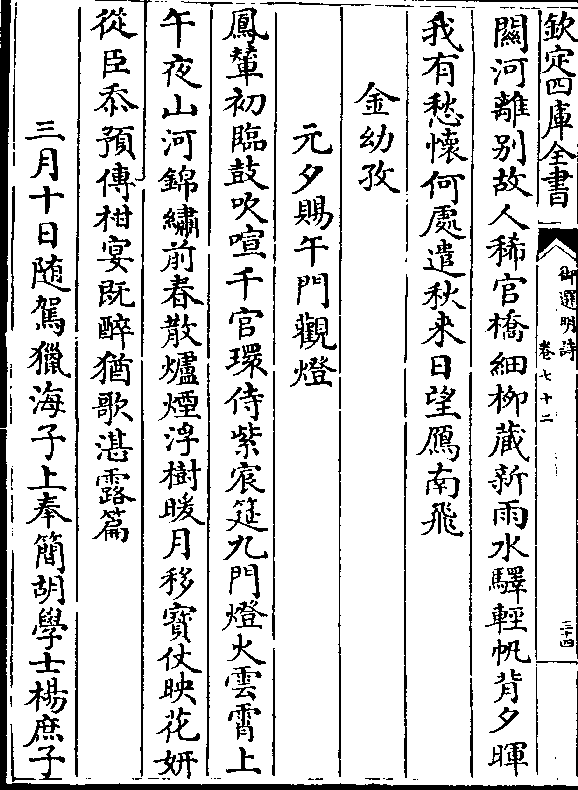 欽定四庫全書
御選明詩
卷七十二
三十四
關河離别故人稀官橋細栁蔵新雨水驛輕帆背夕暉
我有愁懷何處遣秋来日望鴈南飛
金幼孜
元夕賜午門觀燈
鳳輦初臨鼓吹喧千官環侍紫宸筵九門燈火雲霄上
午夜山河錦繡前春散爐煙浮樹暖月移寳仗映花妍
從臣忝預傳柑宴既醉猶歌湛露篇
三月十日随駕獵海子上奉簡胡學士楊庶子